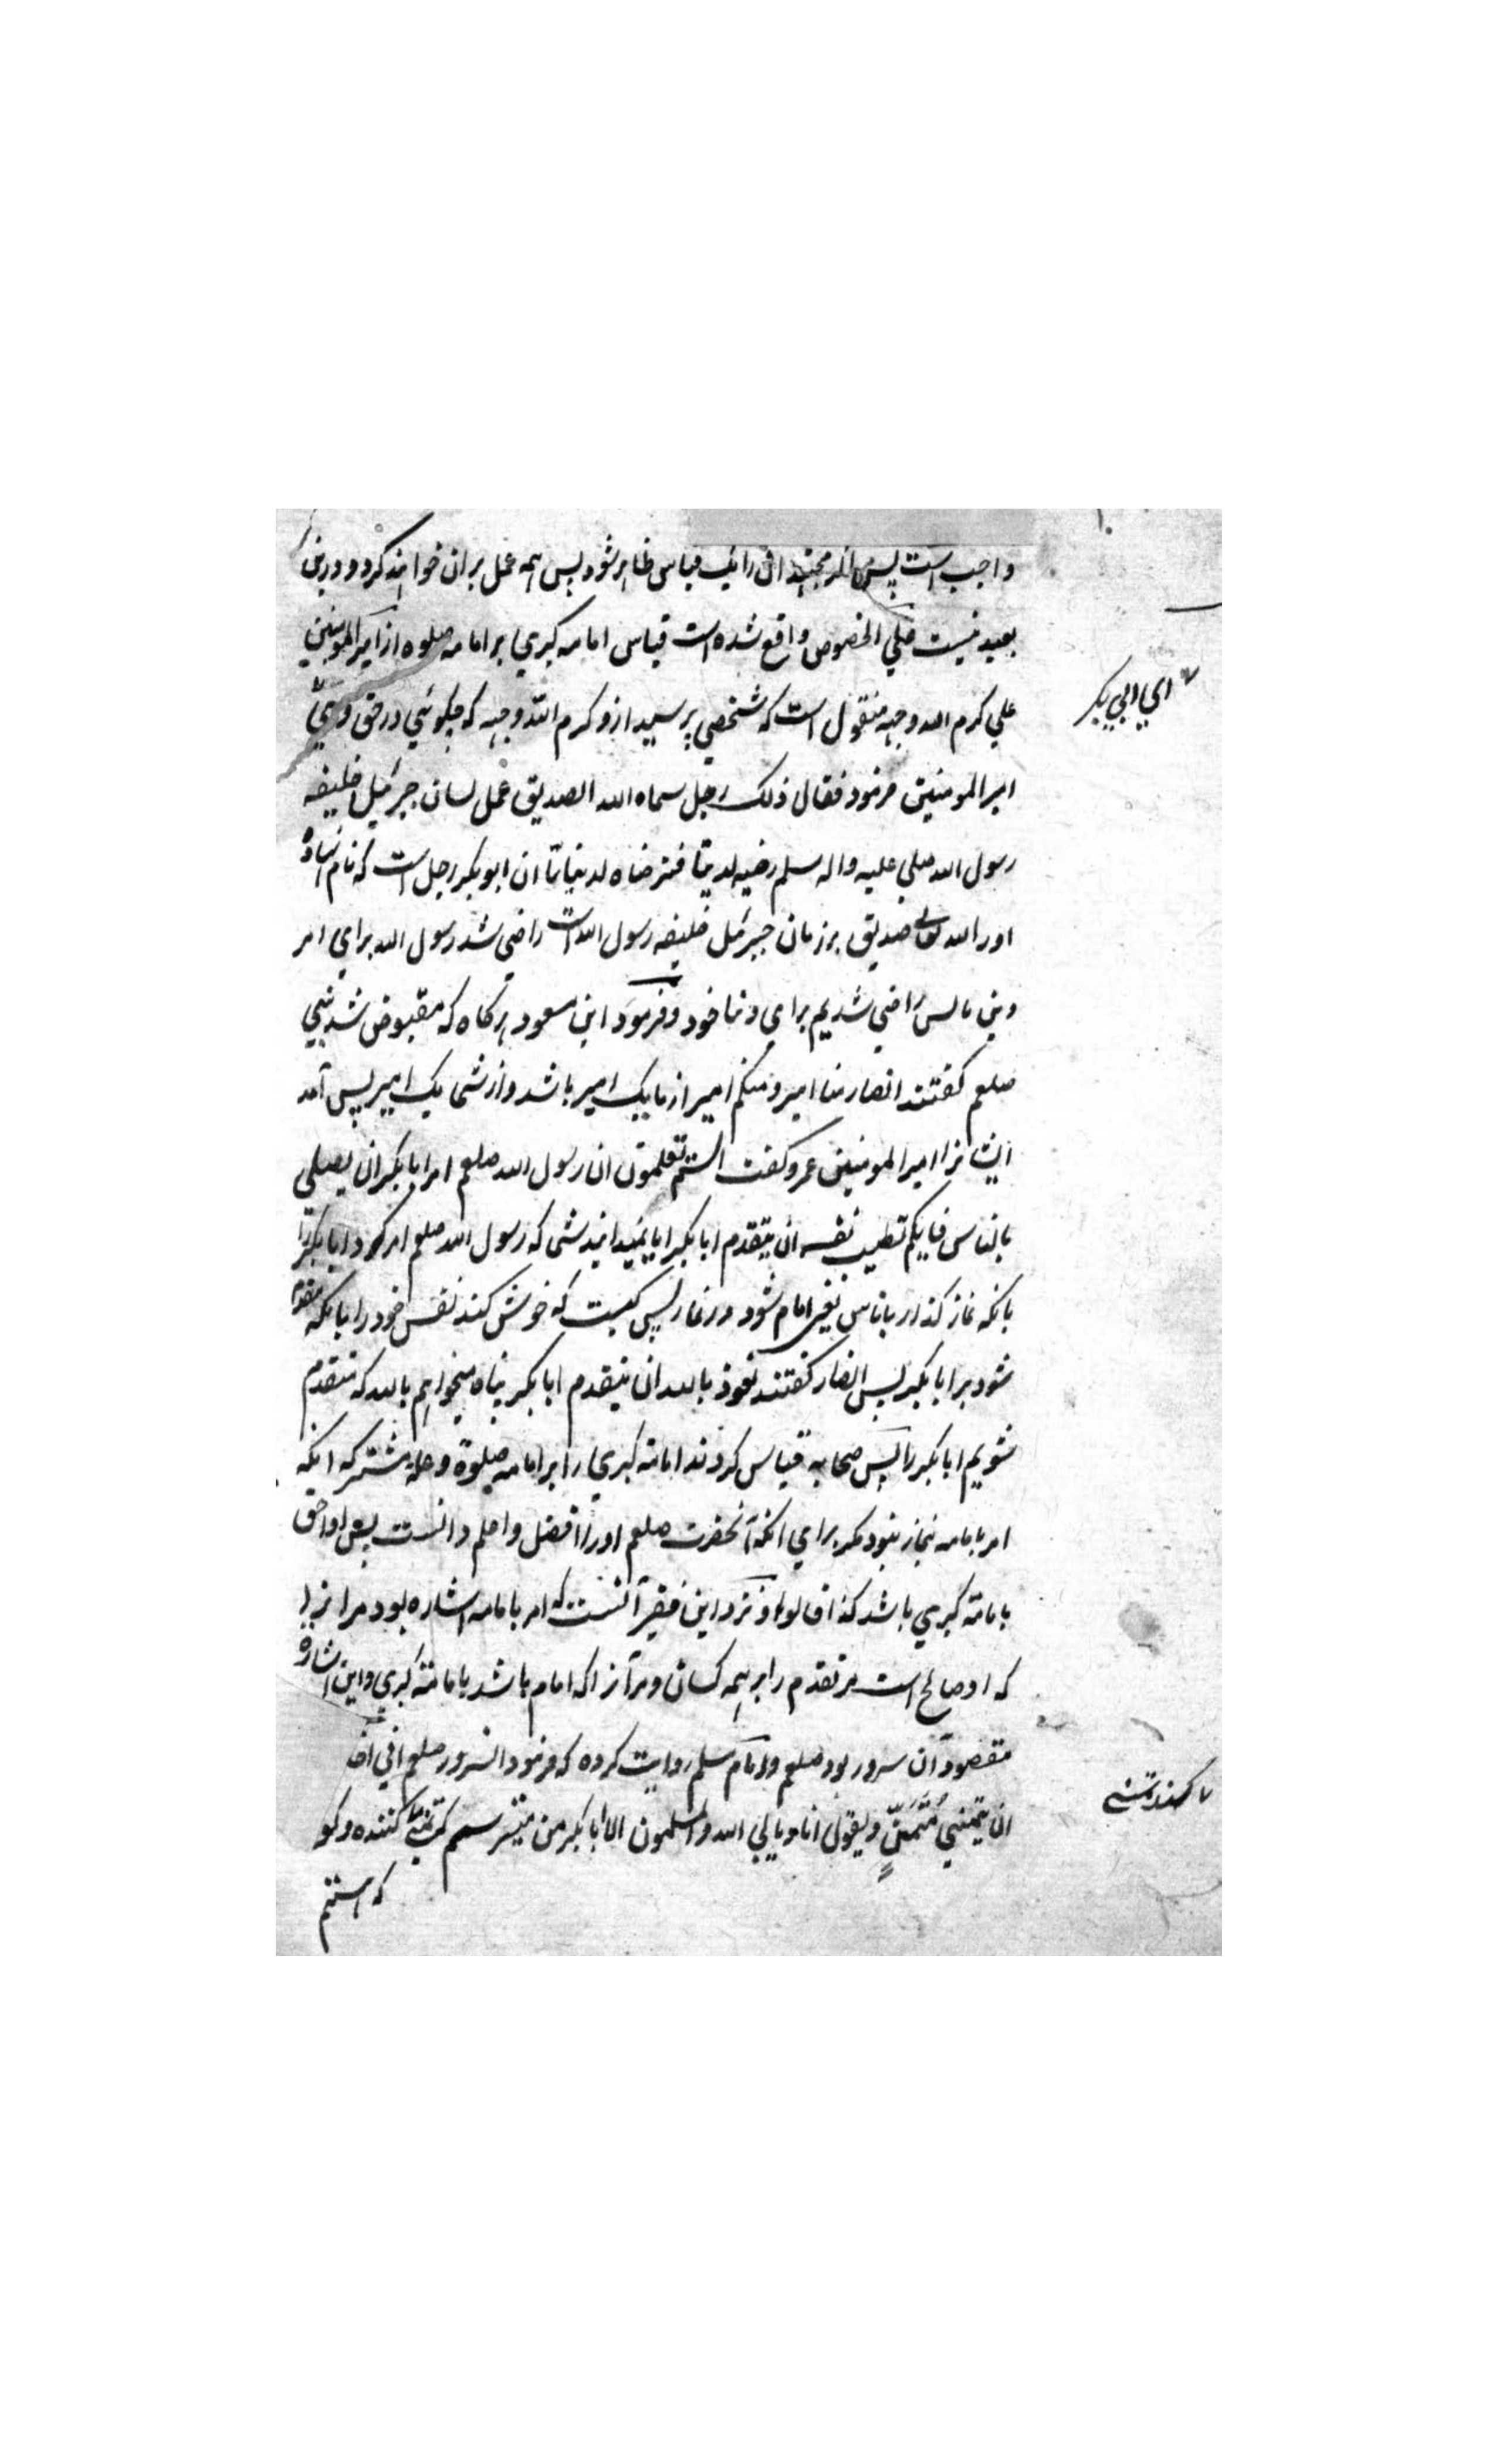 واجب است پس اگر مجتهدان را یک قیاس ظاهر شود پس همه عمل بران خواهند کرد و درین
بعید نیست علي الخصوص واقع شده است قیاس امامه کبري بر امامه صلوه از امیر المومنین
علي کرم الله وجهه منقول است که شخصي پرسید ازو کرم الله وجهه که چکوئي در حق وي
اي ابي بکر
امیر المومنین فرمود فقال ذلک رجل سماه الله الصدیق علی لسان جبرئیل خلیفه
رسول الله صلي علیه واله سلم رضیه لدیننا فترضاه لدنیانا ان ابو بکر رجل است که نام نهاده
اورا الله تعالی صدیق بر زمان جبرئل خلیفه رسول الله است راضي شد رسول الله براي امر
دین ما پس راضي شدیم براي دنیا خود و فرمود ابن مسعود هرکاه که مقبوض شد نبي
صلعم کفتند انصار منا امیر و منکم امیر از ما یک امیر باشد و از شما یک امیر پس آمد
ایشانرا امیر المومنین عمر و کفت الستم تعلمون ان رسول الله صلعم امر ابا بکر ان یصلي
بالناس فایکم تطیب نفسه ان یتقدم ابا بکر ایا نمیدانید شما که رسول الله صلعم امر کرد ابا بکر را
بانکه نماز کذارد بناس یعني امام شود در نماز پس کیست که خوش کند نفس خود را بانکه متقدم
شود بر ابا بکر پس انصار کفتند نعوذ بالله ان یتقدم ابا بکر پناه میخواهم بالله که متقدم
شویم ابا بکر را پس صحابه قیاس کردند امامة کبري را بر امامه صلوة و علة مشترکه انکه
امر بامامه نماز نبود مکر براي انکه آنحضرت صلعم اورا افضل و اعلم دانست پس او احق
بامامة کبري باشد کذا قالوا و نزد این فقیر آنست که امر بامامه اشاره بود مر انرا
که او صالح است مر تقدم را بر همه کسان و مر آنرا که امام باشد بامامة کبري و این اشاره
مقصود آن سرور بود صلعم و امام مسلم روایت کرده که فرمود انسرور صلعم اني اخاف
ان یتمني مُتَمَنٍّ ویقول انا ویابي الله والمسلمون الا ابا بکر من میترسم که تمنا کننده و کو
که هستم